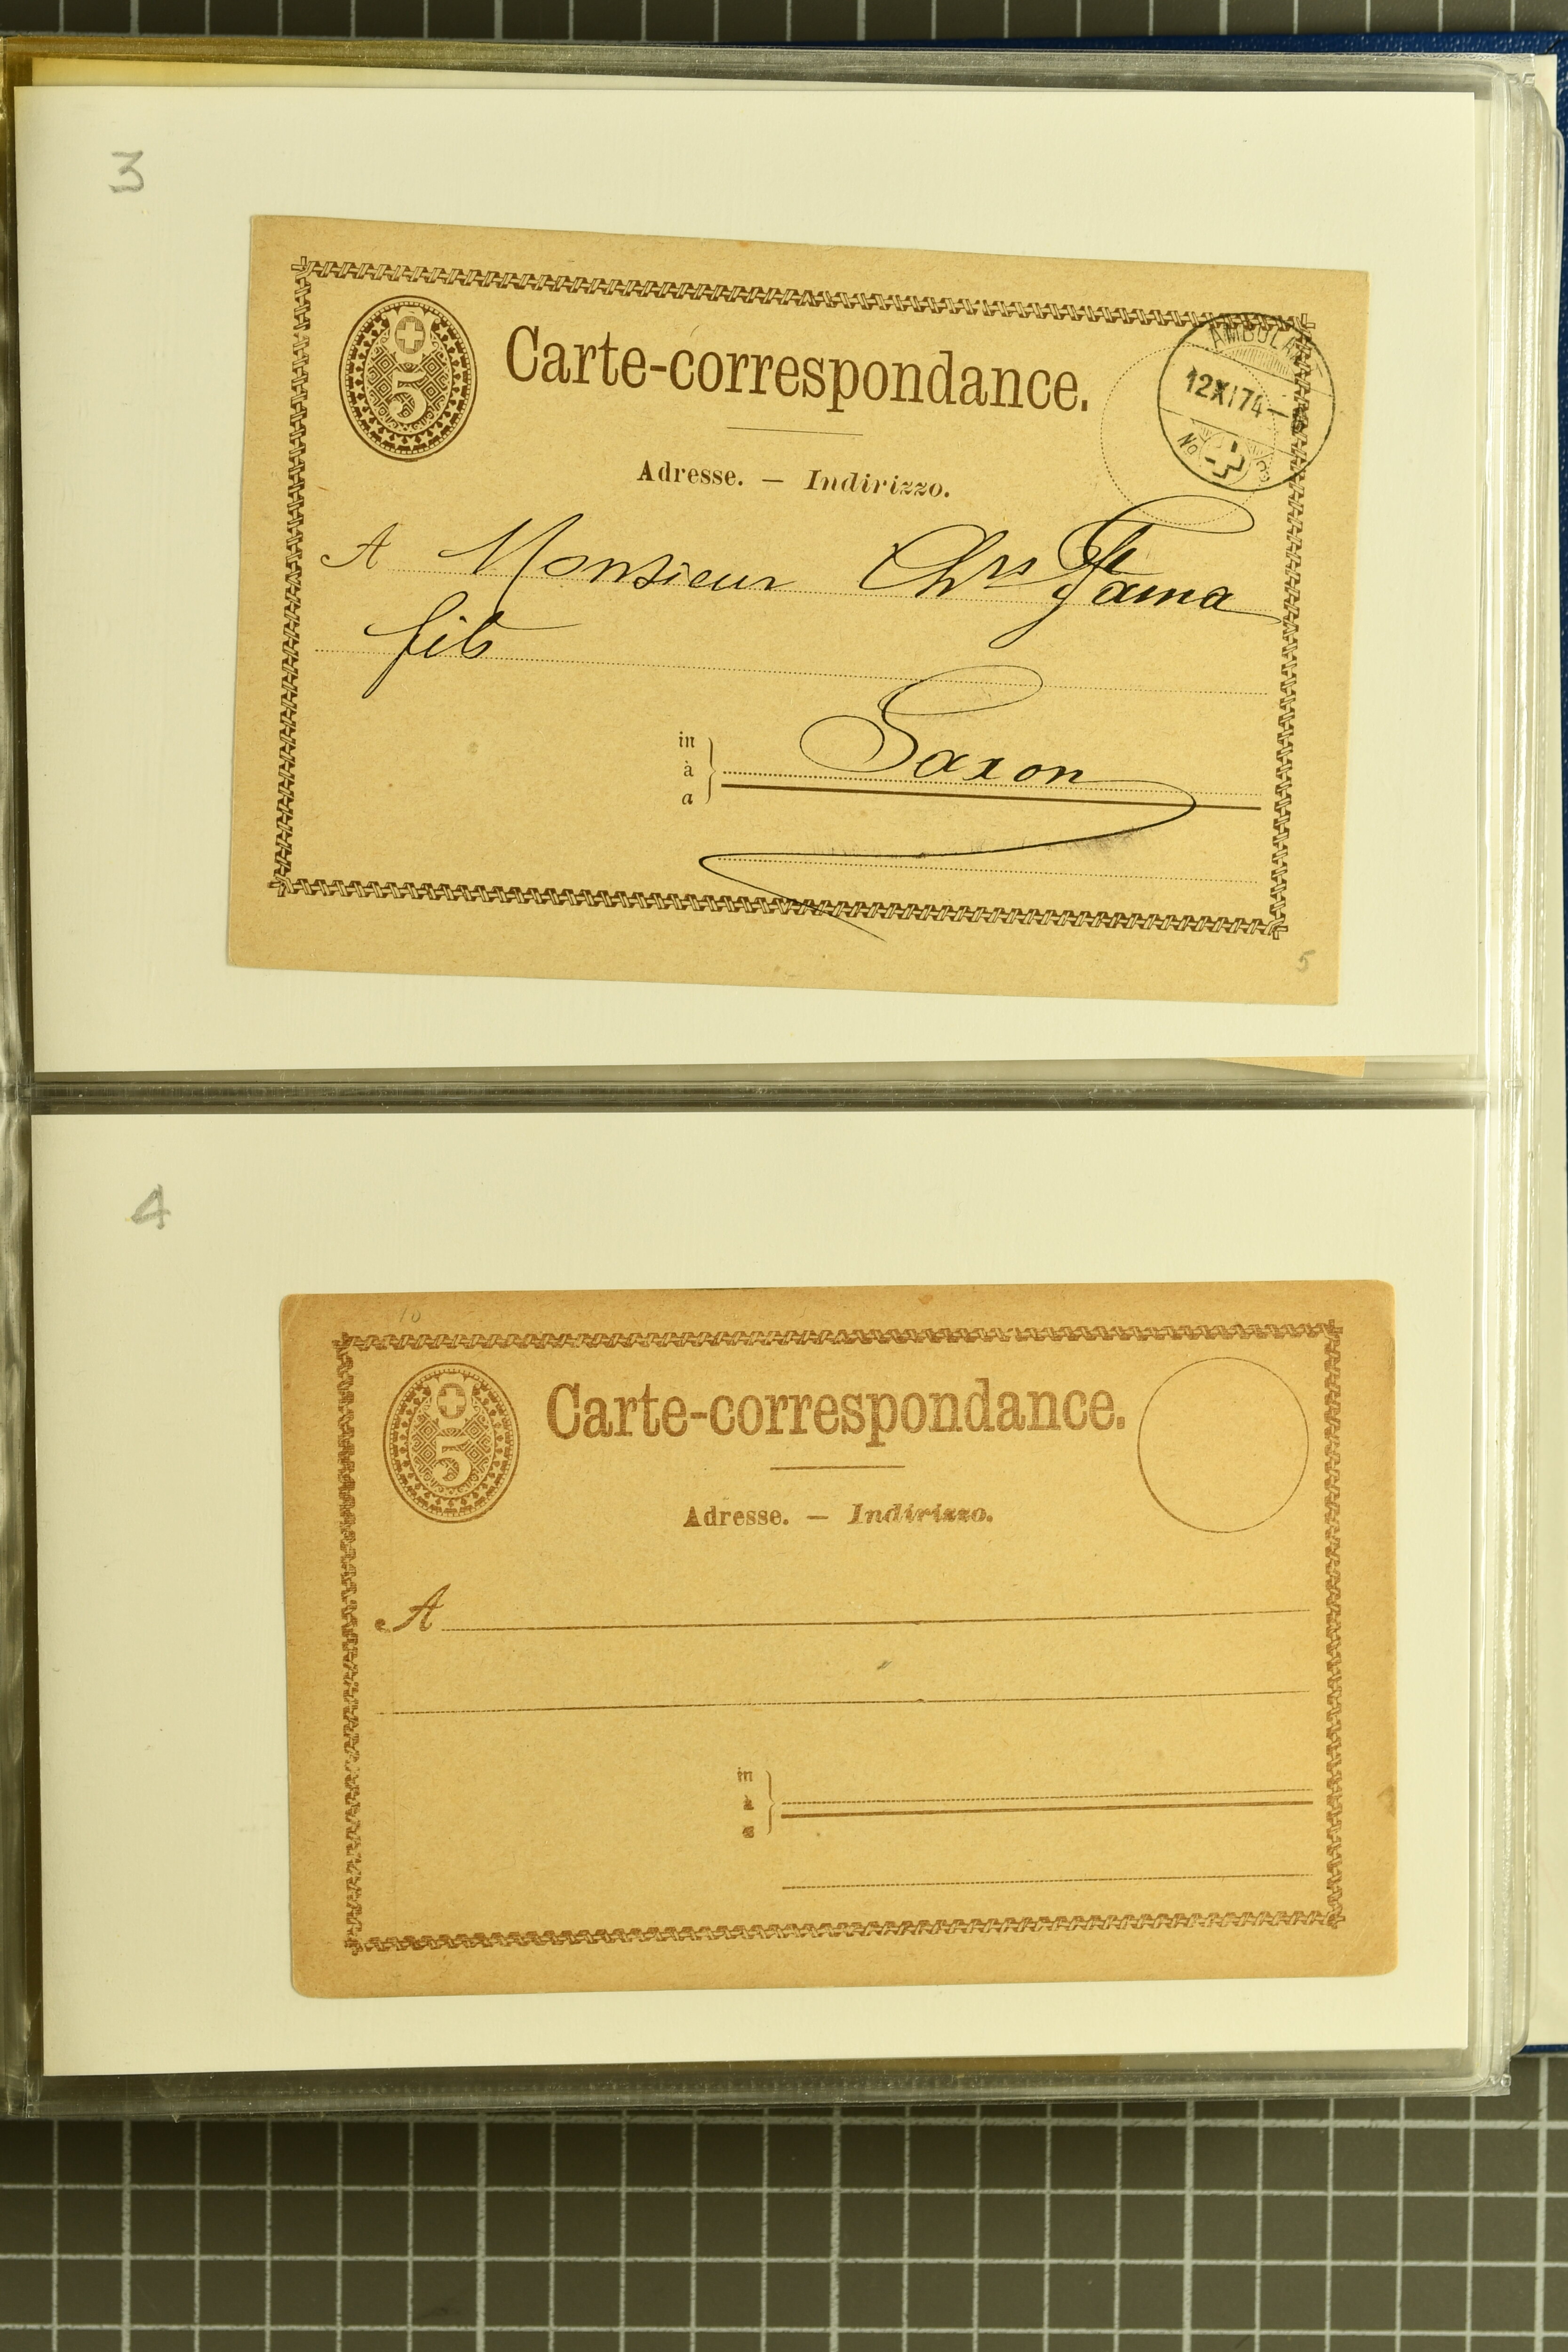 3
5
Carte-correspondance.
AMBULANT
12 XI 74
No
Adresse. — Indirizzo.
A Monsieur Chrs Fama
fils
in
à Saxon
a
5
4
10
5
Carte-correspondance.
Adresse. — Indirizzo.
A
in
à
a